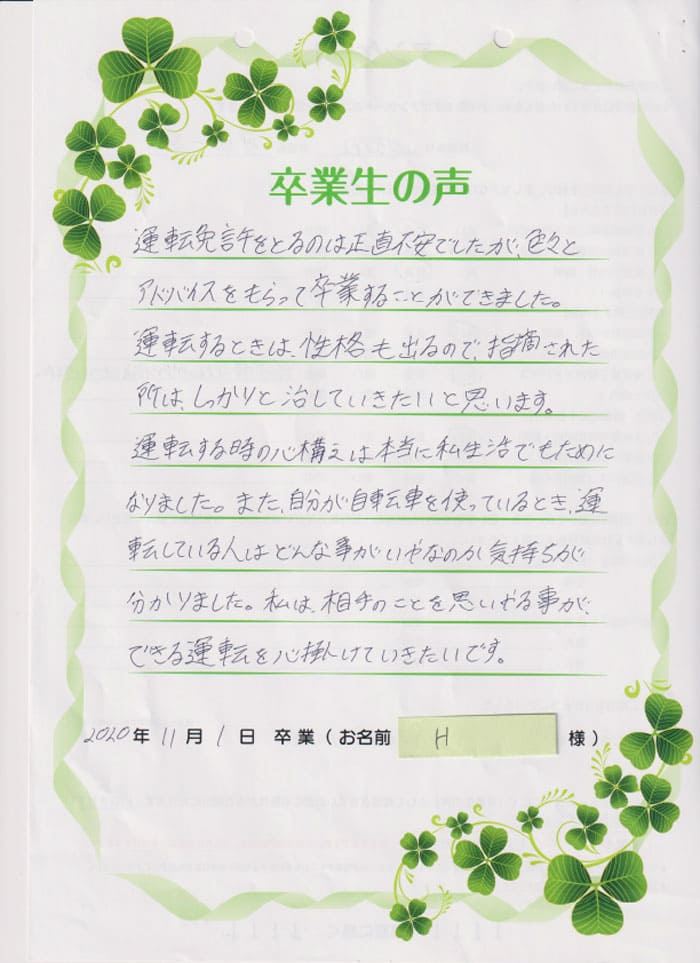 卒業生の声
運転免許をとるのは正直不安でしたが、色々と
アドバイスをもらって卒業することができました。
運転するときは、性格も出るので、指摘された
所は、しっかりと治していきたいと思います。
運転する時の心構えは本当に私生活でもために
なりました。また、自分が自転車を使っているとき、運
転している人はどんな事がいやなのか気持ちが
分かりました。私は、相手のことを思いやる事が、
できる運転を心掛けていきたいです。
2020年 11月 1日 卒業(お名前 H 様)